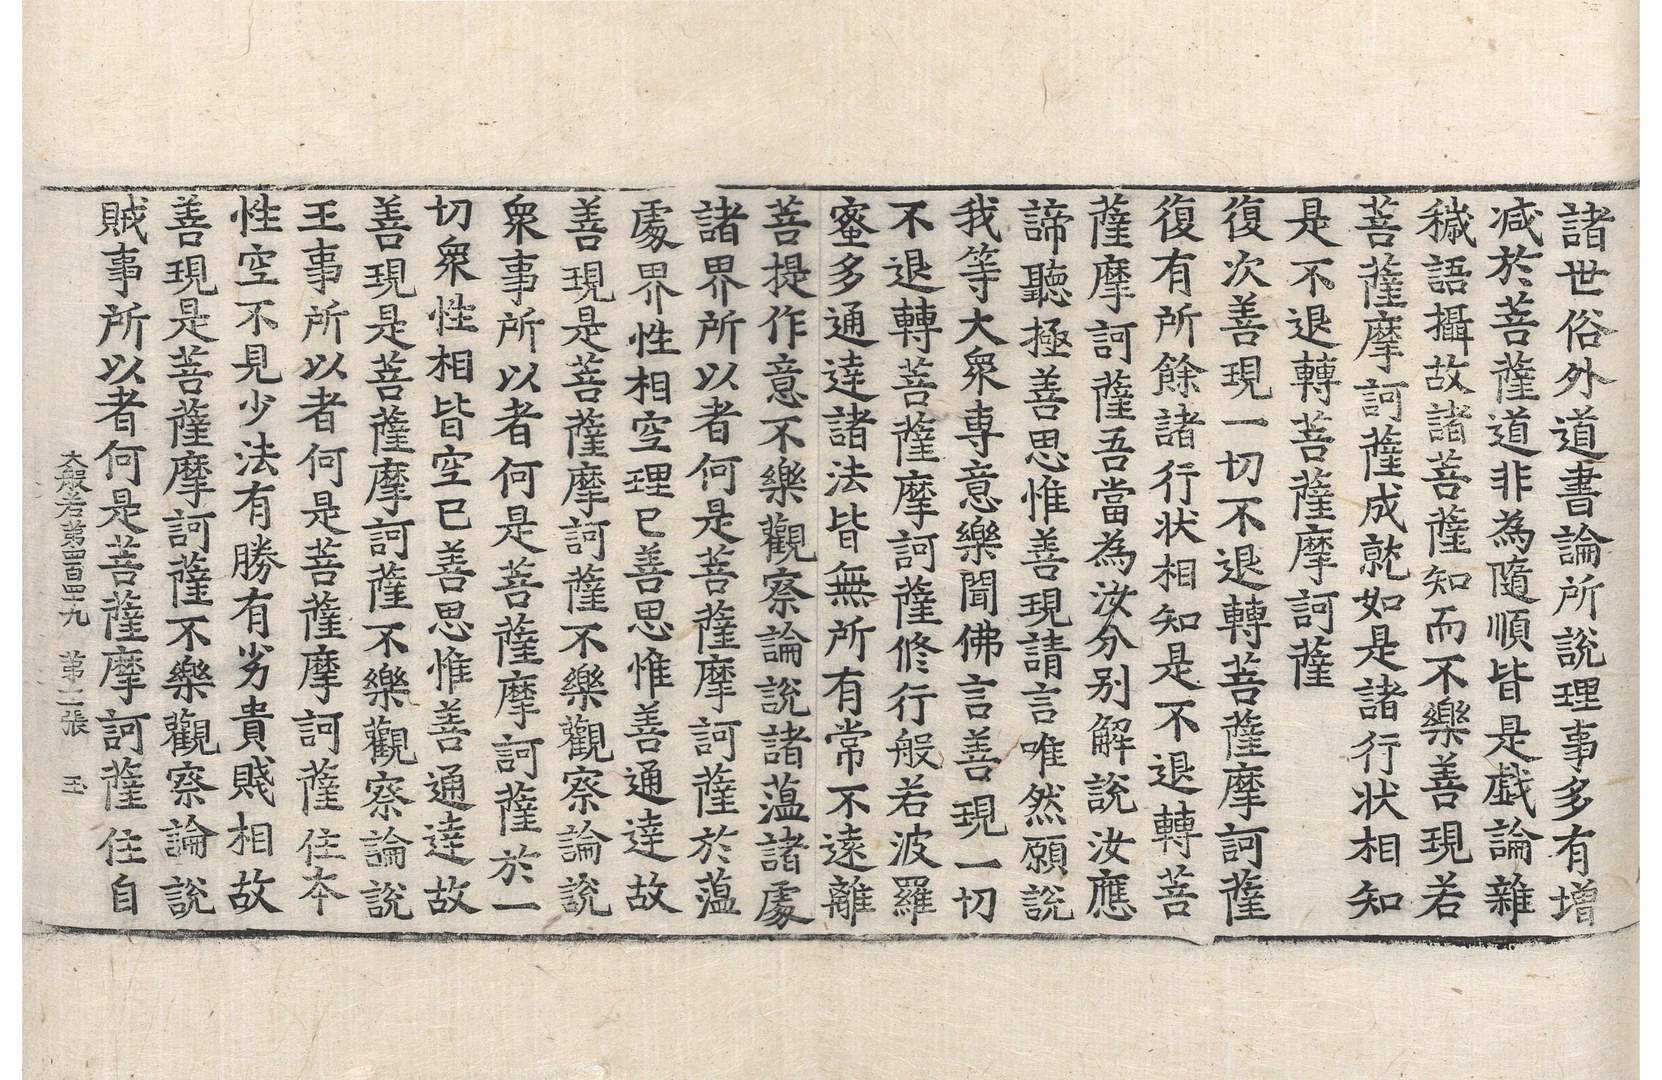 諸世俗外道書論所說理事多有增
减於菩薩道非為隨順皆是戱論雜
穢語攝故諸菩薩知而不樂善現若
菩薩摩訶薩成就如是諸行狀相知
是不退轉菩薩摩訶薩
復次善現一切不退轉菩薩摩訶薩
復有所餘諸行狀相知是不退轉菩
薩摩訶薩吾當為汝分别解說汝應
諦聽極善思惟善現請言唯然願說
我等大衆專意樂聞佛言善現一切
不退轉菩薩摩訶薩修行般若波羅
蜜多通達諸法皆無所有常不遠離
菩提作意不樂觀察論說諸薀諸處
諸界所以者何是菩薩摩訶薩於薀
處界性相空理已善思惟善通達故
善現是菩薩摩訶薩不樂觀察論說
衆事所以者何是菩薩摩訶薩於一
切衆性相皆空已善思惟善通達故
善現是菩薩摩訶薩不樂觀察論說
王事所以者何是菩薩摩訶薩住本
性空不見少法有勝有劣貴賤相故
善現是菩薩摩訶薩不樂觀察論說
賊事所以者何是菩薩摩訶薩住自
大般若第四百四九 第二張 玉